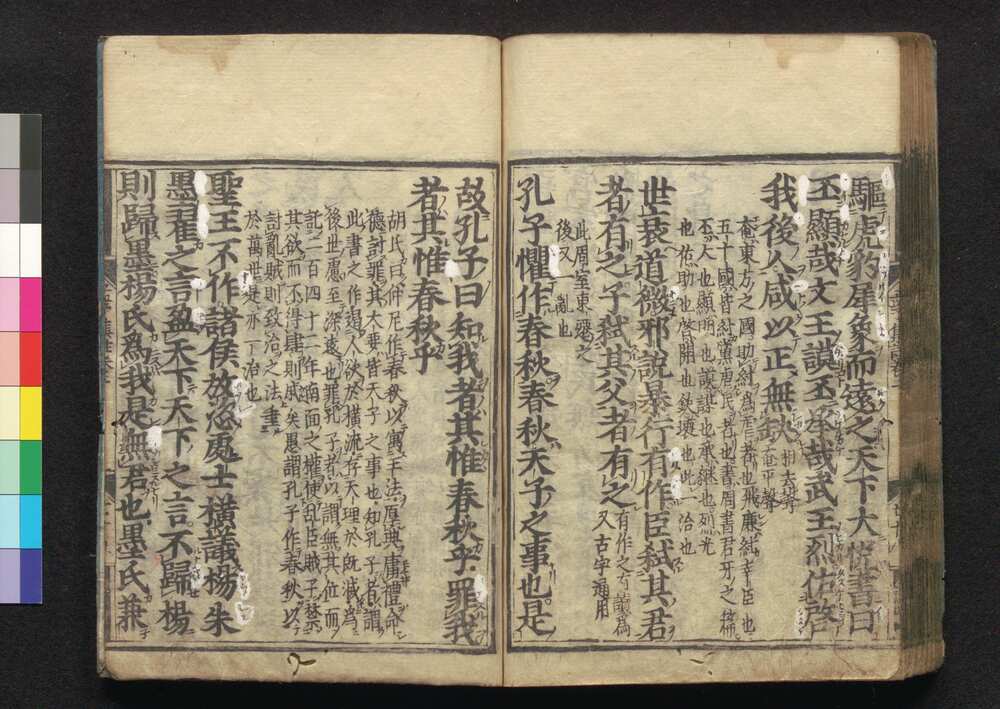 驅虎豹犀象而遠之天下大悅書曰
丕顯哉文王謨丕承哉武王烈佑啓
我後人咸以正無缺
相去聲
奄平聲
奄東方之國助紂爲虐者也飛廉紂幸臣也
五十國皆紂黨虐民者也書周書君牙之篇
丕大也顯明也謨謀也承繼也烈光
也佑助也啓開也缺壞也此一治也
世衰道微邪說暴行有作臣弑其君
者有之子弑其父者有之
有作之有讀爲
又古字通用
此周室東遷之
後又一亂也
孔子懼作春秋春秋天子之事也是
故孔子曰知我者其惟春秋乎罪我
者其惟春秋乎
胡氏曰仲尼作春秋以寓王法厚典庸禮命
德討罪其大要皆天子之事也知孔子者謂
此書之作遏人欲於橫流存天理於既滅爲
後世慮至深遠也罪孔子者以謂無其位而
託二百四十二年南面之權使亂臣賊子禁
其欲而不得肆則戚矣愚謂孔子作春秋以
討亂賊則致治之法垂
於萬世是亦一治也
聖王不作諸侯放恣處士橫議楊朱
墨翟之言盈天下天下之言不歸楊
則歸墨楊氏爲我是無君也墨氏兼